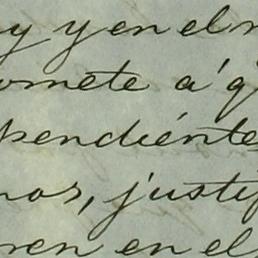 y y en el
omete á q
pendiénte
nos, justif
ren en el